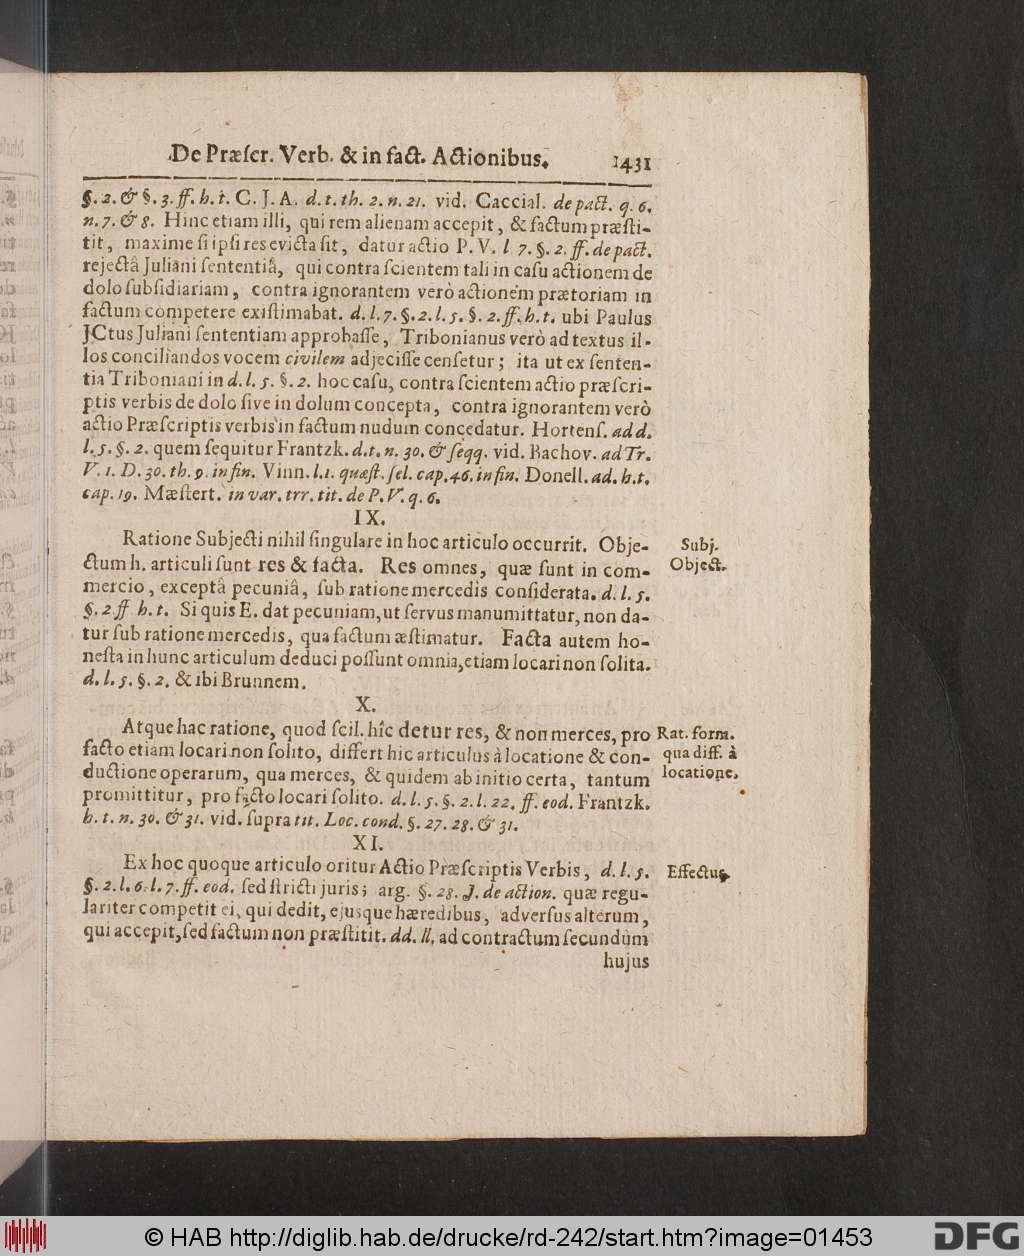 De Præſcr. Verb. & in fact. Actionibus. 1431
§. 2. & §. 3. ff. h. t. C. J. A. d. t. th. 2. n. 21. vid. Caccial. de pact. q. 6.
n. 7. & 8. Hinc etiam illi, qui rem alienam accepit, & factum præſti-
tit, maxime ſi ipſi res evicta ſit, datur actio P. V. l. 7. §. 2. ff. de pact.
rejectâ Juliani ſententiâ, qui contra ſcientem tali in caſu actionem de
dolo ſubſidiariam, contra ignorantem verò actionem prætoriam in
factum competere exiſtimabat. d. l. 7. §. 2. l. 5. §. 2. ff. h. t. ubi Paulus
JCtus Juliani ſententiam approbaſſe, Tribonianus verò ad textus il-
los conciliandos vocem civilem adjeciſſe cenſetur; ita ut ex ſenten-
tia Triboniani in d. l. 5. §. 2. hoc caſu, contra ſcientem actio præſcri-
ptis verbis de dolo ſive in dolum concepta, contra ignorantem verò
actio Præſcriptis verbis in factum nudum concedatur. Hortenſ. ad d.
l. 5. §. 2. quem ſequitur Frantzk. d. t. n. 30. & ſeqq. vid. Bachov. ad Tr.
V. 1. D. 30. th. 9. in fin. Vinn. l. 1. quæſt. ſel. cap. 46. in fin. Donell. ad. h. t.
cap. 19. Mæſtert. in var. trr. tit. de P. V. q. 6.
IX.
Ratione Subjecti nihil ſingulare in hoc articulo occurrit. Obje-
ctum h. articuli ſunt res & facta. Res omnes, quæ ſunt in com-
mercio, exceptâ pecuniâ, ſub ratione mercedis conſiderata. d. l. 5.
§. 2 ff h. t. Si quis E. dat pecuniam, ut ſervus manumittatur, non da-
tur ſub ratione mercedis, qua factum æſtimatur. Facta autem ho-
neſta in hunc articulum deduci poſſunt omnia, etiam locari non ſolita.
d. l. 5. §. 2. & ibi Brunnem.
Subj.
Object.
X.
Atque hac ratione, quod ſcil. hîc detur res, & non merces, pro
facto etiam locari non ſolito, differt hic articulus à locatione & con-
ductione operarum, qua merces, & quidem ab initio certa, tantum
promittitur, pro facto locari ſolito. d. l. 5. §. 2. l. 22. ff. eod. Frantzk.
h. t. n. 30. & 31. vid. ſupra tit. Loc. cond. §. 27. 28. & 31.
Rat. form.
qua diff. à
locatione.
XI.
Ex hoc quoque articulo oritur Actio Præſcriptis Verbis, d. l. 5.
§. 2. l. 6. l. 7. ff. eod. ſed ſtricti juris; arg. §. 28. J. de action. quæ regu-
lariter competit ei, qui dedit, ejusque hæredibus, adverſus alterum,
qui accepit, ſed factum non præſtitit. dd. ll. ad contractum ſecundùm
hujus
Effectus.
© HAB http://diglib.hab.de/drucke/rd-242/start.htm?image=01453
DFG